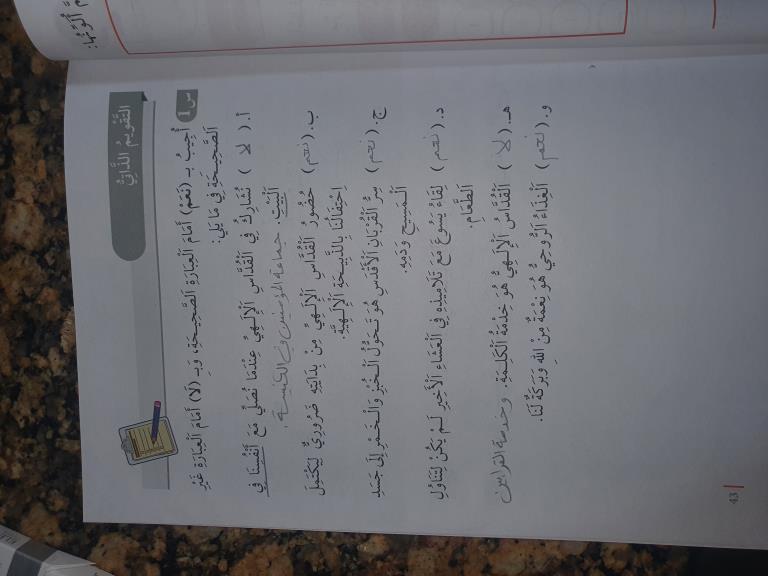 أَلْوَنُهَا:
التَّقْوِيمُ الذَّاتِيُّ
س1
أُجِيبُ بِـ (نَعَمْ) أَمَامَ الْعِبَارَةِ الصَّحِيحَةِ، وَبِـ (لَا) أَمَامَ الْعِبَارَةِ غَيْرِ
الصَّحِيحَةِ فِي مَا يَلِي:
أ. ( لا ) نُشَارِكُ فِي الْقُدَّاسِ الْإِلَهِيِّ عِنْدَمَا نُصَلِّي مَعَ أَنْفُسِنَا فِي
الْبَيْتِ. جماعة المؤمنين في الكنيسة.
ب. (نعم) حُضُورُ الْقُدَّاسِ الْإِلَهِيِّ مِنْ بِدَايَتِهِ ضَرُورِيٌّ لِيَكْتَمِلَ
احْتِفَالُنَا بِالذَّبِيحَةِ الْإِلَهِيَّةِ.
ج. (نعم) سِرُّ الْقُرْبَانِ الْأَقْدَسِ هُوَ تَحَوُّلُ الْخُبْزِ وَالْخَمْرِ إِلَى جَسَدِ
الْمَسِيحِ وَدَمِهِ.
د. (نعم) لِقَاءُ يَسُوعَ مَعَ تَلَامِيذِهِ فِي الْعَشَاءِ الْأَخِيرِ لَمْ يَكُنْ لِتَنَاوُلِ
الطَّعَامِ.
هـ. ( لا ) الْقُدَّاسُ الْإِلَهِيُّ هُوَ خِدْمَةُ الْكَلِمَةِ. وخدمة القرابين
و. (نعم) الْغِذَاءُ الرُّوحِيُّ هُوَ نِعْمَةٌ مِنَ اللهِ وَبَرَكَةٌ لَنَا.
43